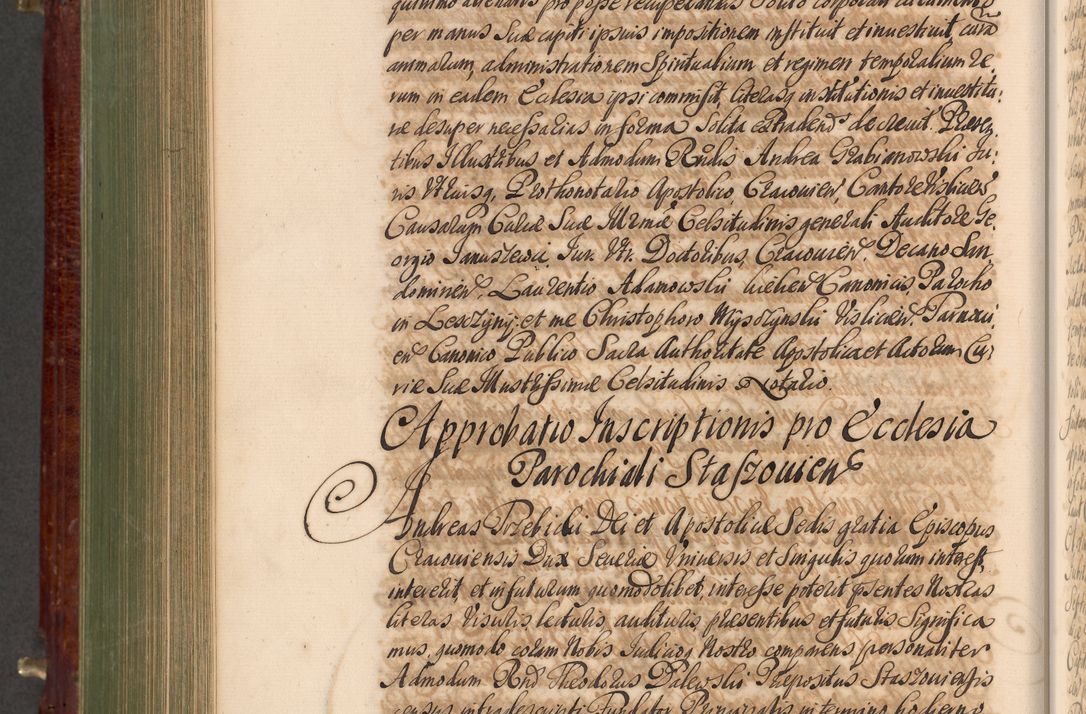 per manus Suæ capiti ipsius impositionem instituit et inuestiuit, curã
animarum, administrationem Spiritualium et regimen temporalium re,
rum in eadem Ecclesia ipsi commisit, literasq institutionis et inuestitu,
ræ desuper necessarias in forma solita extradend decreuit. Præsen,
tibus Illustribus et Admodum Rndis Andrea Grabianowski Ju,
ris Vtriusq, Prothonotario Apostolico, Cracouien, Cantore Vislicien
Causarum Curiæ Suæ Illrmæ Celsitudinis generali Auditore Ge,
orgio Januszewic Jur. Vtr. Doctoribus, Cracouien, Decano San,
domirien, Laurentio Adamowski Kielcen Canonicis, Parocho
in Leszczyny, et me Christophoro Mysoczynski Vislicien, Tarnoui,
en Canonico Publico Sacra Authoritate Apostolica et Actorum Cu,
riæ Suæ Illustrissimæ Celsitudinis Notario.
Approbatio Inscriptionis pro Ecclesia
Parochiali Staszouien
Andreas Trzebicki Dei et Apostolicæ Sedis gratia Episcopus
Cracouiensis Dux Seueriæ Vniuersis et Singulis quorum interest,
intererit, et in futurum quomodolibet, interesse poterit pñtes Nostras
literas Visuris lecturis, audituris, præsentibus et futuris Significa
mus, quomodo coram Nobis Judicioq Nostro comparens personaliter
Admodum Rnd Theodorus Dalewski Præpositus Staszouiensis
census infradescripti Fundator Principalis in termino hodierno